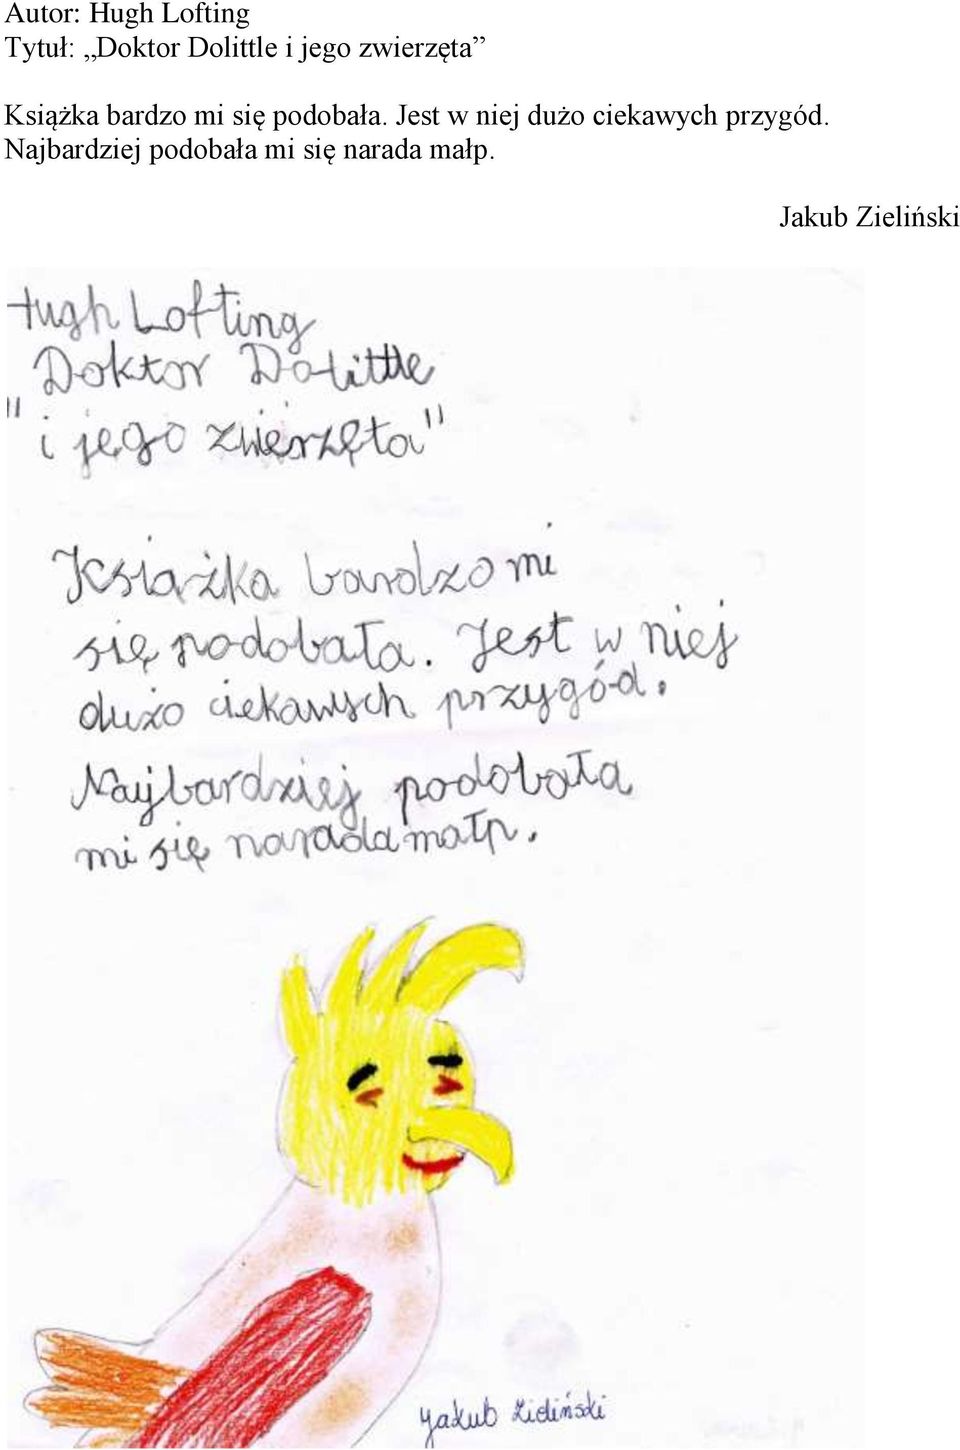 Autor: Hugh Lofting
Tytuł: „Doktor Dolittle i jego zwierzęta”
Książka bardzo mi się podobała. Jest w niej dużo ciekawych przygód.
Najbardziej podobała mi się narada małp.
Jakub Zieliński
Hugh Lofting
Doktor Dolittle
" i jego zwierzęta"
Książka bardzo mi
się podobała. Jest w niej
dużo ciekawych przygód.
Najbardziej podobała
mi się narada małp.
Jakub Zieliński